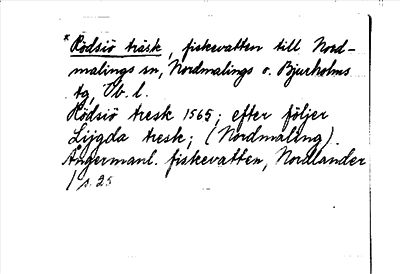 *Rödsiö träsk, fiskevatten till Nord-
malings sn, Nordmalings o. Bjurholms
tg, Vb. l.
Rödsiö tresk 1565; efter följer
Lijgda tresk; (Nordmaling).
Ångermanl. fiskevatten, Nordlander
1 s. 25